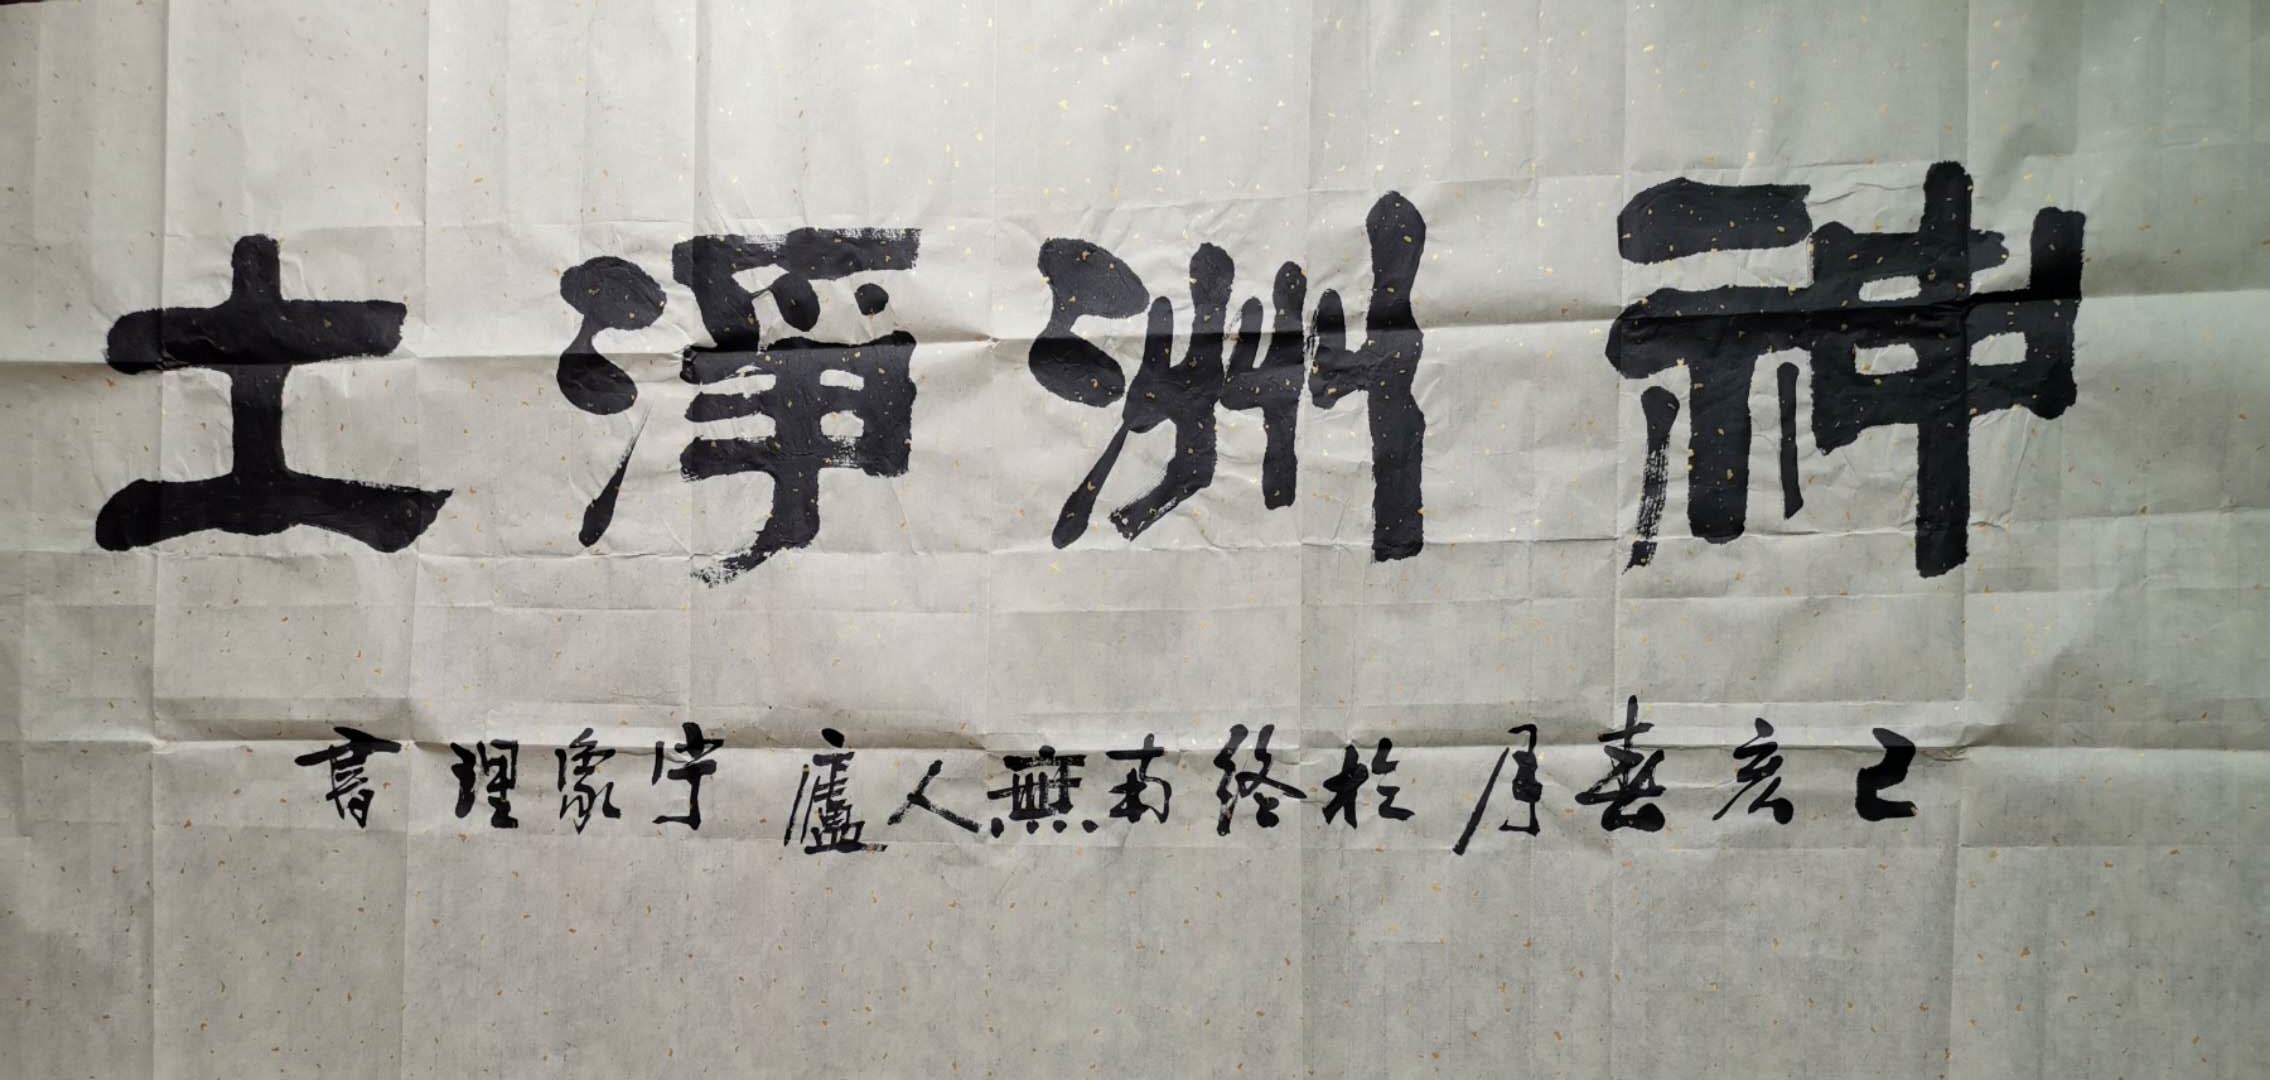 神洲淨土
己亥春月於終南無人廬宁象理書